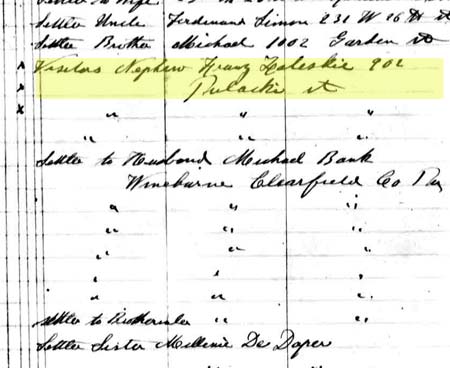 Settler Uncle Ferdinand Simon 231 W 26 St
Settler Brother Michael 1002 Garden St
Visitors Nephew Franz Koleskie 902
Pulaski st
" " "
" " "
Settler to Husband Michael Bank
Wineburne Clearfield Co Pa
" " "
" " "
" " "
" " "
" " "
Settler to " "
Settler Sister De